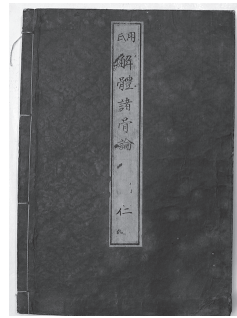 民用
解體諸骨論
仁